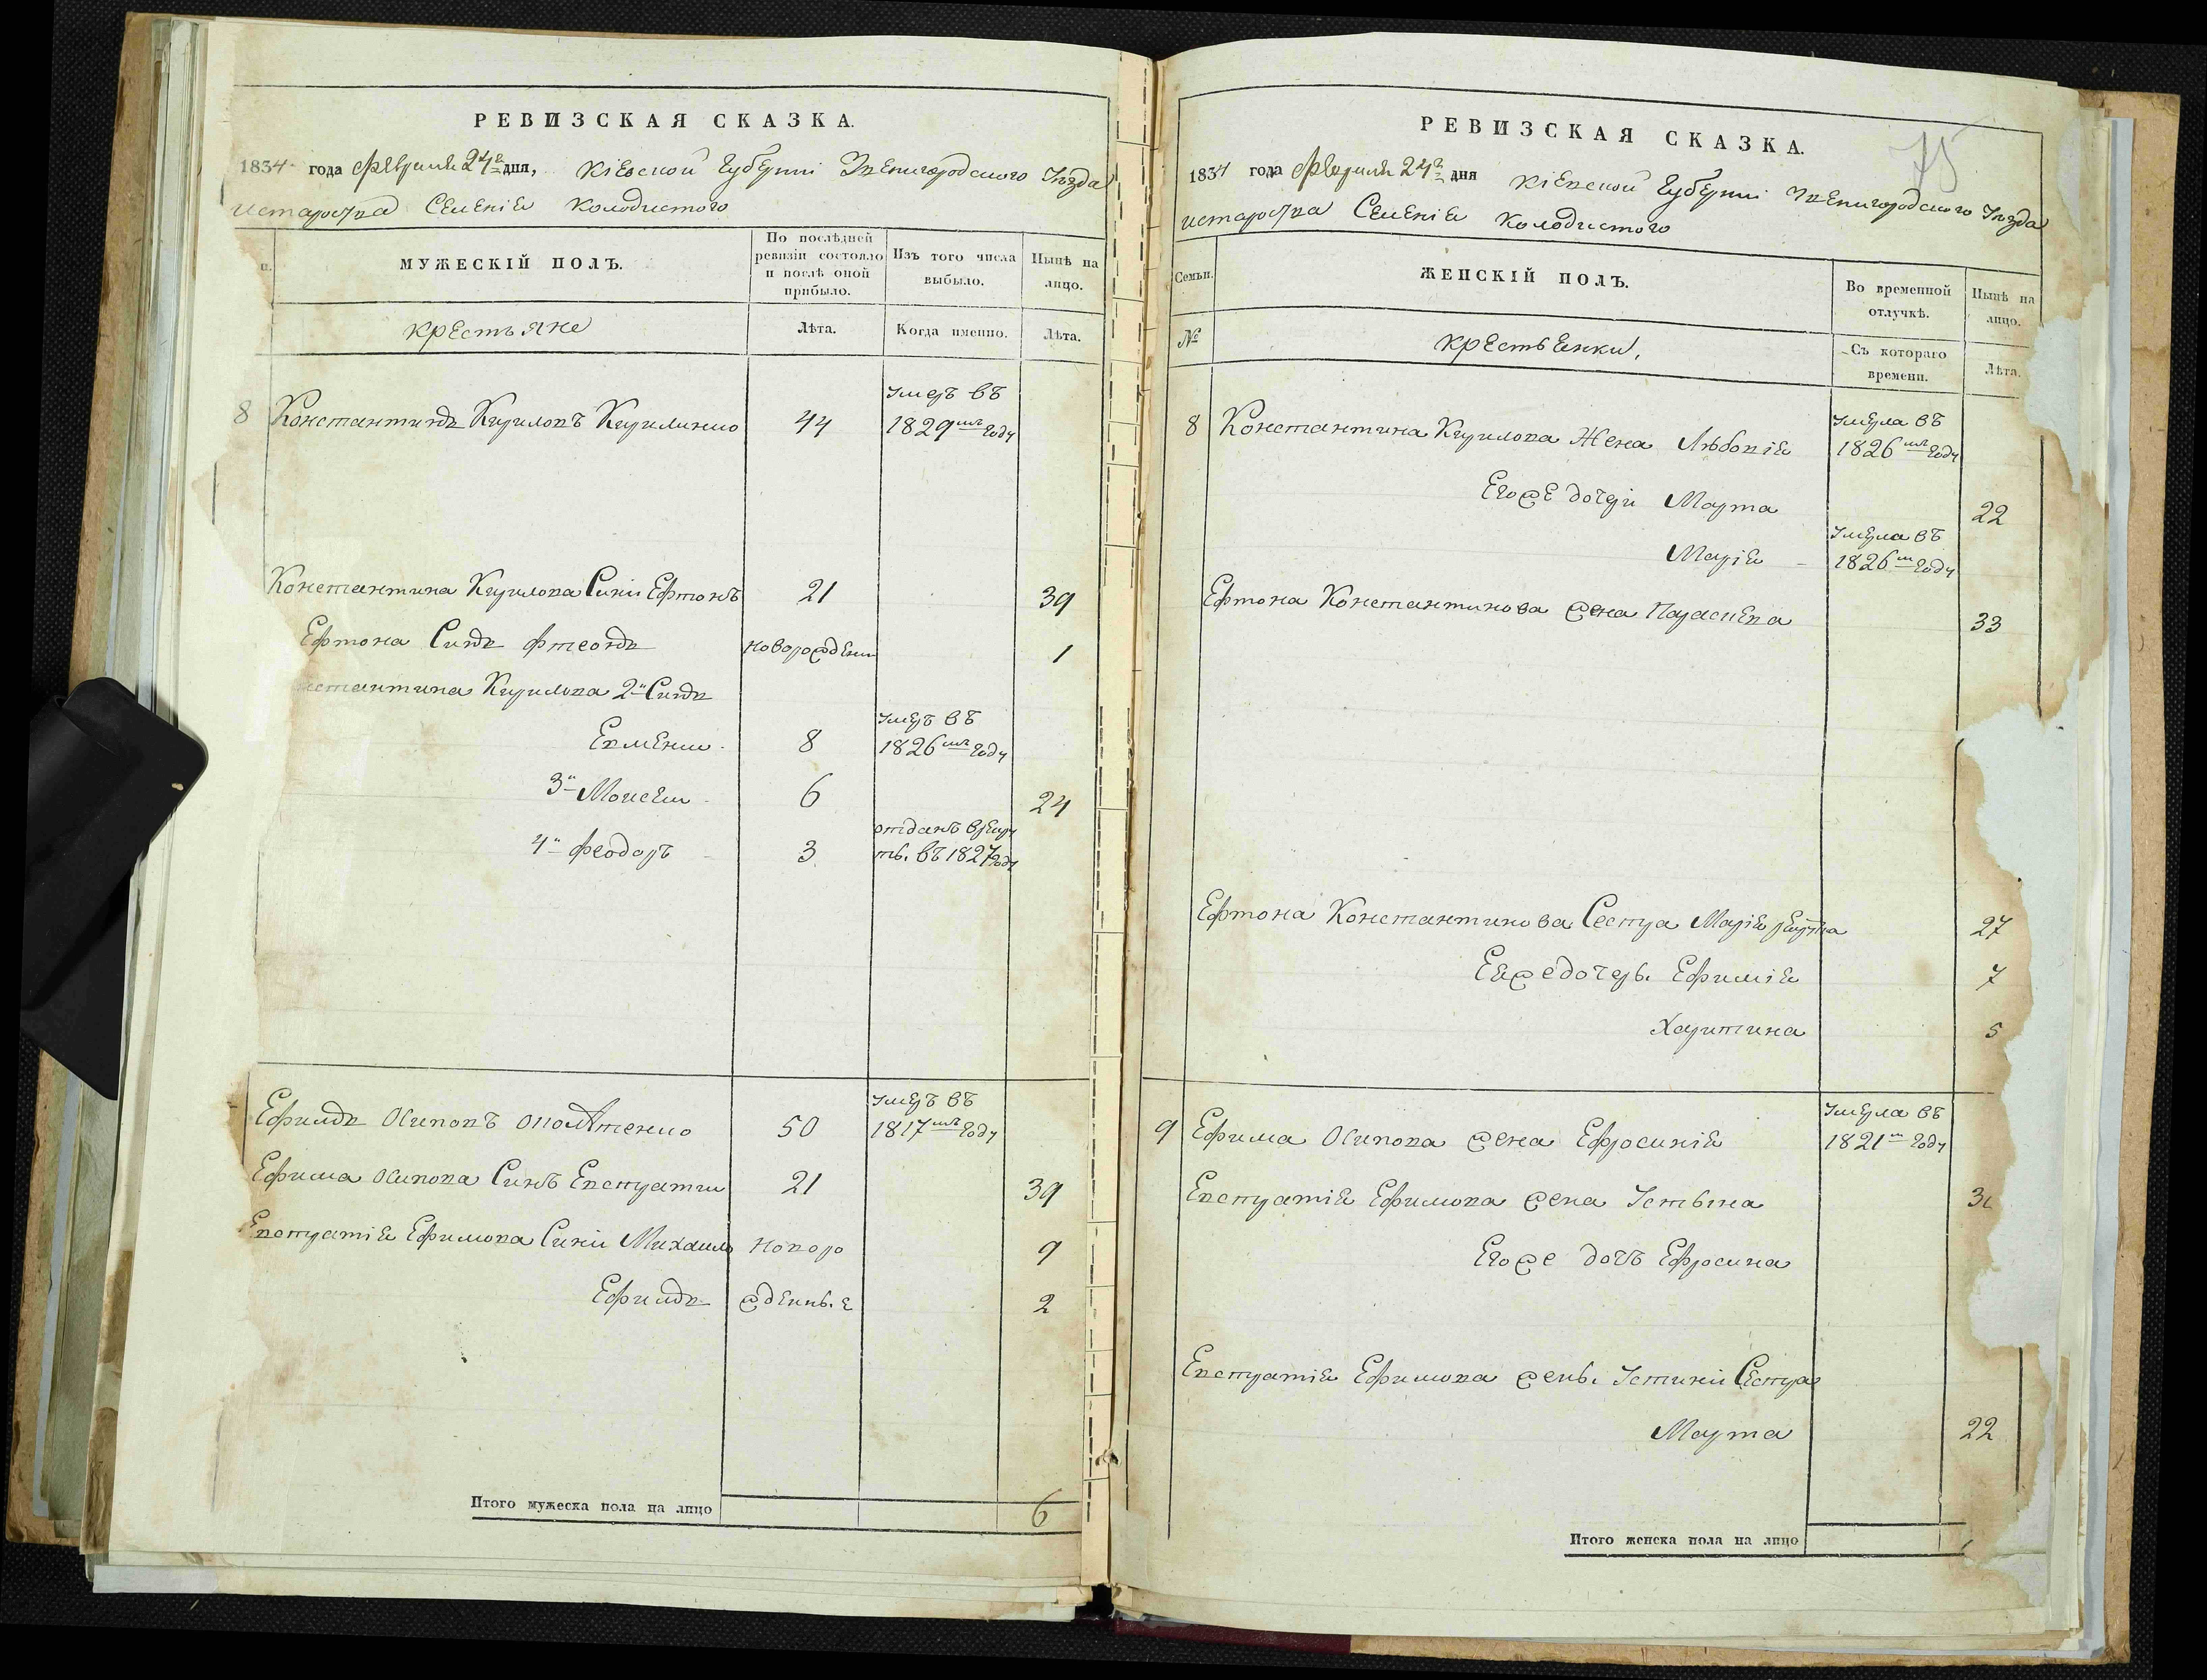 РЕВИЗСКАЯ СКАЗКА.
1834 года Февраля 24го дня, Кіевской Губерніи Звенигородского Уезда
Староства Селенія Колодистого
МУЖЕСКІЙ ПОЛЪ.
По послѣдней ревизіи состояло и послѣ оной прибыло.
Изъ того числа выбыло.
Нынѣ на лицо.
крестьяне
Лѣта.
Когда именно.
Лѣта.
8 Константинъ Кириловъ Кириленко 44 Умеръ въ 1829мъ Году
Константина Кирилова Синъ Ефтонъ 21 39
Ефтона Синъ новорожденн 1
Кирилова 2й Синъ
Евмении 8 Умеръ въ 1826мъ Году
3й Моисеи 6 24
4й Феодоръ 3 отданъ врекру ты. въ 1827 Году
Ефимъ Осиповъ 50 Умеръ въ 1817мъ Году
Ефима Осипова Синъ Евстратии 21 39
Евстратія Ефимова Синъ Михаило новоро 9
Ефимъ жденные 2
Итого мужеска пола на лицо 6
75
РЕВИЗСКАЯ СКАЗКА.
1834 года Февраля 24го дня Кіевской Губерніи Звенигородского Уезда
Староства Селенія Колодистого
Семьи.
ЖЕНСКІЙ ПОЛЪ.
Во временной отлучкѣ.
Нынѣ на лицо.
№
крестьянки.
Съ котораго времени.
Лѣта.
8 Константина Кирилова Жена Умерла въ 1826мъ Году
Егоже дочери Марта 22
Марія Умерла въ 1826м Году
Ефтона Константинова жена Параскева 33
Ефтона Константинова Сестра Марія 27
Еяже дочеры Ефимія 7
Харитина 5
9 Ефима Осипова жена Ефросинія Умерла въ 1821м Году
Евстратія Ефимова жена Устына
Егоже дочъ Ефросина
Евстратія Ефимова жены Устини Сестра
Марта 22
Итого женска пола на лицо